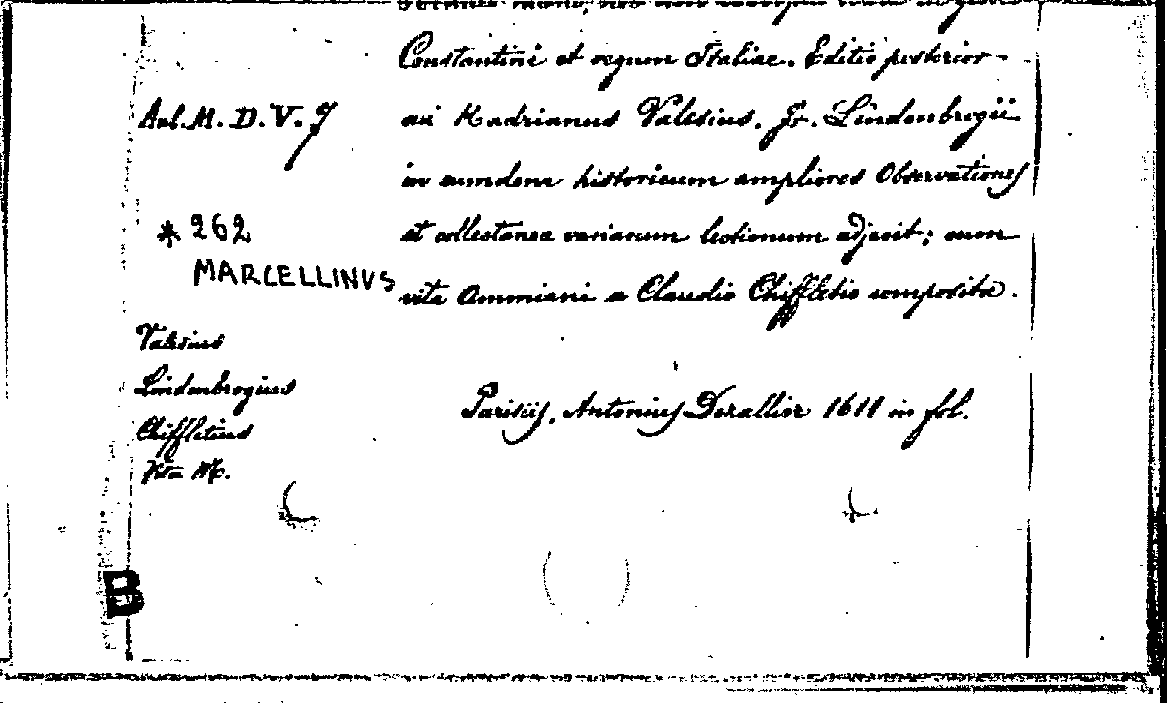 Constantini et regum Italiae. Editio posterior
Aul. M. D. V. 7
cui Hadrianus Valesius. Fr. Lindenbrogii
in eumdem historicum ampliores Observationes
* 262
et collectanea variarum lectionum adjecit; cum
MARCELLINVS
vita Ammiani a Claudio Chiffletio composita.
Valesius
Lindenbrogius
Parisiis, Antonius Dezallier 1611 in fol.
Chiffletius
Vita M.
B